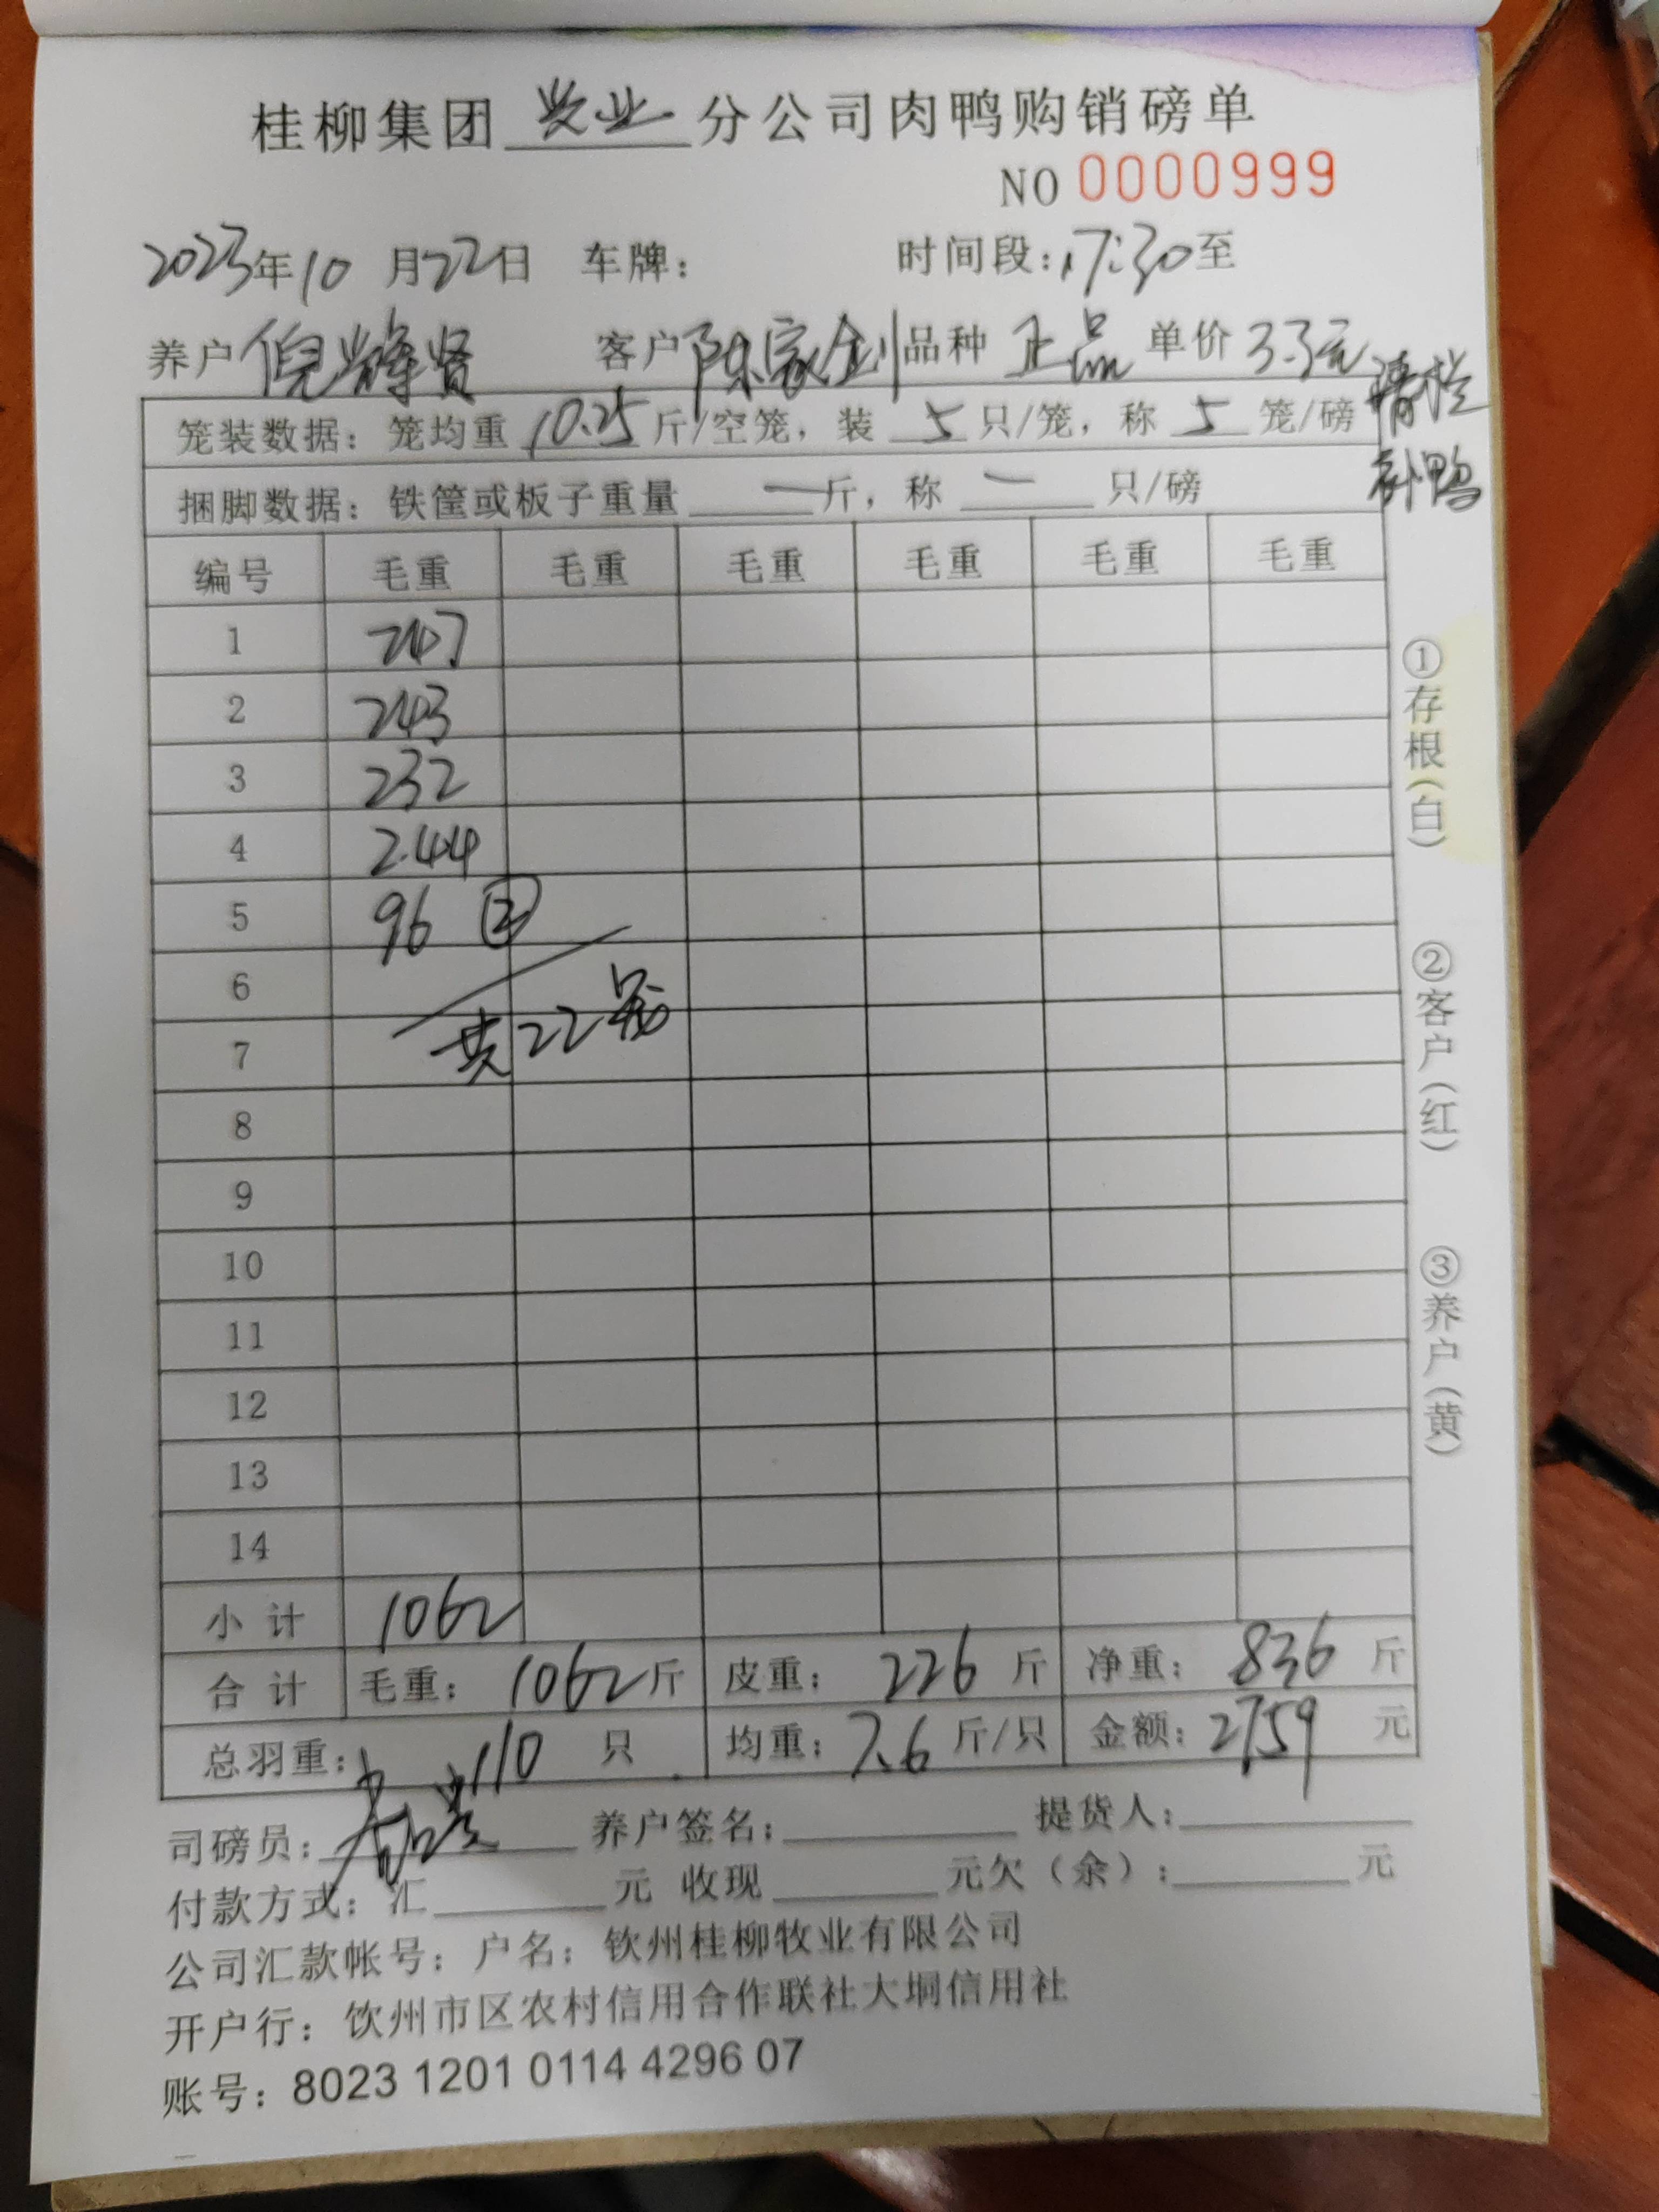 桂柳集团 兴业 分公司肉鸭购销磅单
NO 0000999
2023年10月22日 车牌: 时间段:17:30至
养户 倪辉贤 客户 陈家剑 品种 正品 单价 3.3元
清栏
补鸭
笼装数据: 笼均重 10.25 斤/空笼, 装 5 只/笼, 称 5 笼/磅
捆脚数据: 铁筐或板子重量 — 斤, 称 — 只/磅
编号 毛重 毛重 毛重 毛重 毛重 毛重
1 247
2 243
3 232
4 244
5 96 ②
6
7 共22笼
8
9
10
11
12
13
14
小计 1062
合计 毛重: 1062斤 皮重: 226 斤 净重: 836 斤
总羽重: 110 只 均重: 7.6 斤/只 金额: 2759 元
司磅员: 养户签名: 提货人:
付款方式: 汇 元 收现 元欠(余): 元
公司汇款帐号: 户名: 钦州桂柳牧业有限公司
开户行: 钦州市区农村信用合作联社大垌信用社
账号: 8023 1201 0114 4296 07
①存根(白)
②客户(红)
③养户(黄)